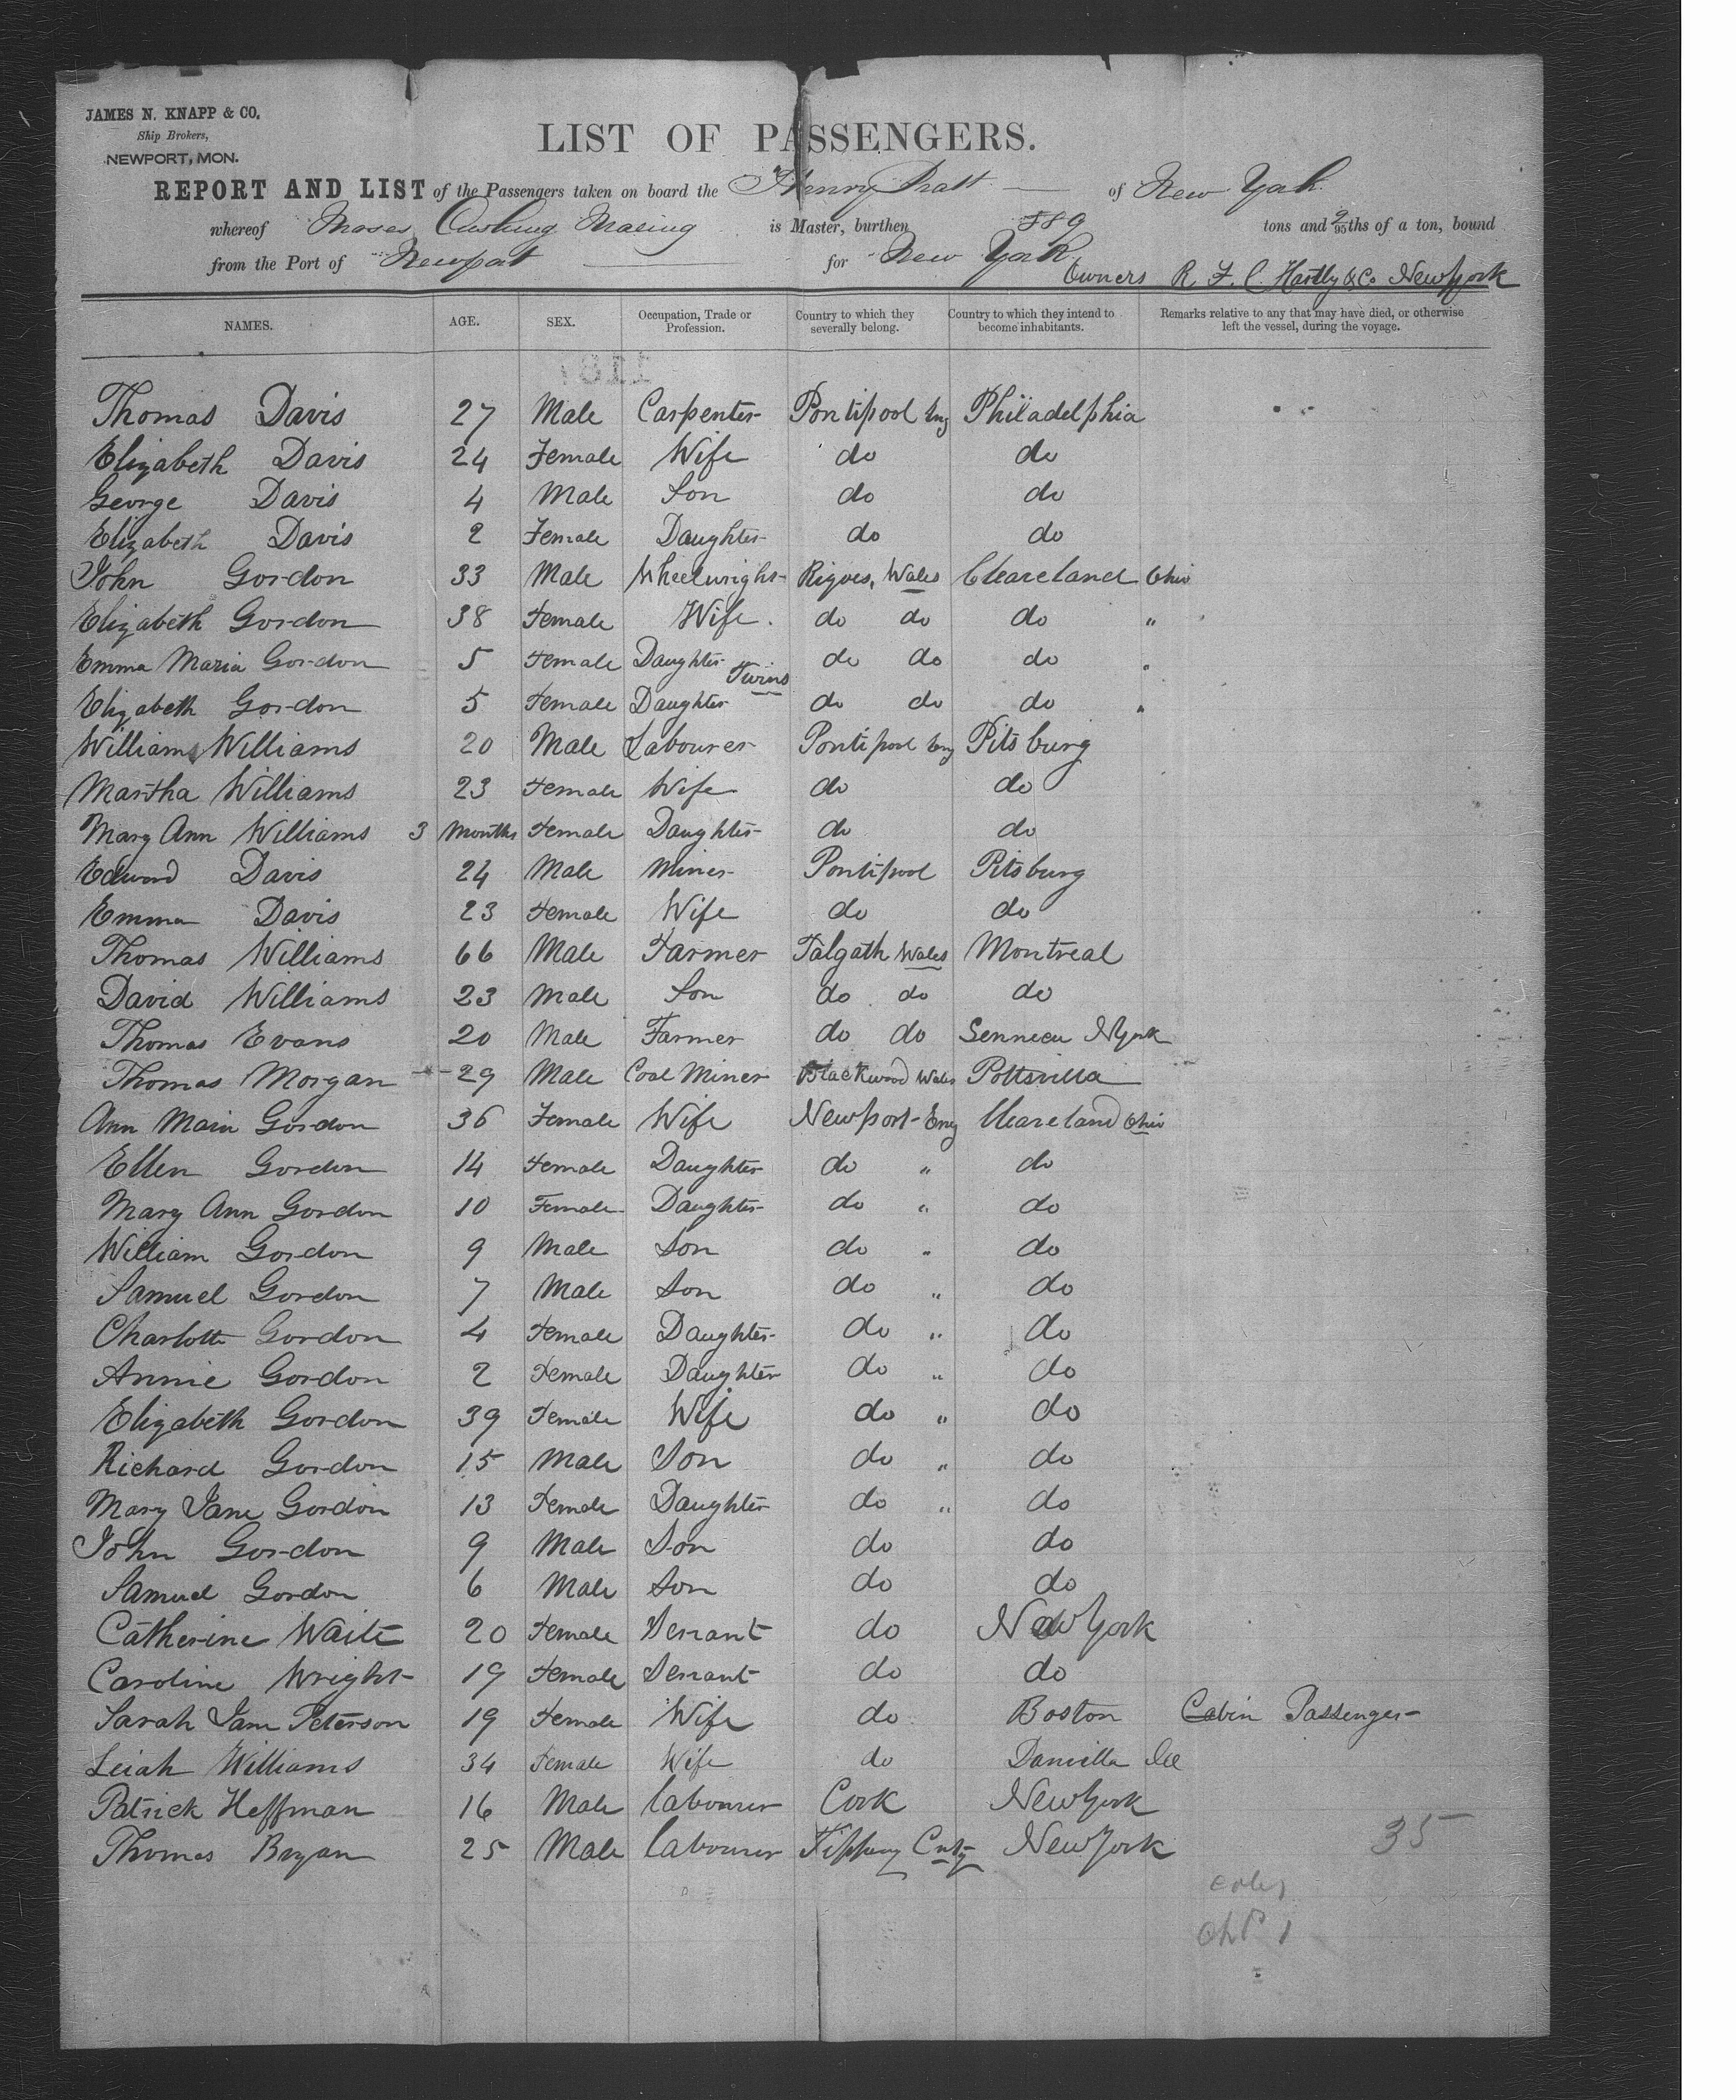 JAMES N. KNAPP & CO.
Ship Brokers,
NEWPORT, MON.
LIST OF PASSENGERS.
REPORT AND LIST of the Passengers taken on board the Henry Pratt of New York
whereof Moses Cushing is Master, burthen 889 tons and 2/95ths of a ton, bound
from the Port of Newport for New York
Owners R. F. C. Hartly & Co New York
NAMES. AGE. SEX. Occupation, Trade or Profession. Country to which they severally belong. Country to which they intend to become inhabitants. Remarks relative to any that may have died, or otherwise left the vessel, during the voyage.
Thomas Davis 27 Male Carpenter Pontipool Eng Philadelphia
Elizabeth Davis 24 Female Wife do do
George Davis 4 Male Son do do
Elizabeth Davis 2 Female Daughter do do
John Gordon 33 Male Wheelwright Wales Cleaveland Ohio
Elizabeth Gordon 38 Female Wife do do do "
Emma Maria Gordon 5 Female Daughter Twins do do do "
Elizabeth Gordon 5 Female Daughter do do do "
William Williams 20 Male Labourer Pontipool Eng Pitsburg
Martha Williams 23 Female Wife do do
Mary Ann Williams 3 Months Female Daughter do do
Edward Davis 24 Male Miner Pontipool Pitsburg
Emma Davis 23 Female Wife do do
Thomas Williams 66 Male Farmer Talgath Wales Montreal
David Williams 23 Male Son do do do
Thomas Evans 20 Male Farmer do do Senneca NYork
Thomas Morgan 29 Male Coal Miner Blackwood Wales Pottsvilla
Ann Maria Gordon 36 Female Wife Newport Eng Cleaveland Ohio
Ellen Gordon 14 Female Daughter do " do
Mary Ann Gordon 10 Female Daughter do " do
William Gordon 9 Male Son do " do
Samuel Gordon 7 Male Son do " do
Charlotte Gordon 4 Female Daughter do " do
Annie Gordon 2 Female Daughter do " do
Elizabeth Gordon 39 Female Wife do " do
Richard Gordon 15 Male Son do " do
Mary Jane Gordon 13 Female Daughter do " do
John Gordon 9 Male Son do do
Samuel Gordon 6 Male Son do do
Catherine Waite 20 Female Servant do New York
Caroline Wright 19 Female Servant do do
Sarah Jane Peterson 19 Female Wife do Boston Cabin Passenger
Leiah Williams 34 Female Wife do Danvilla
Patrick Heffman 16 Male Labourer Cork New York
Thomas Bryan 25 Male Labourer Cnty New York
35